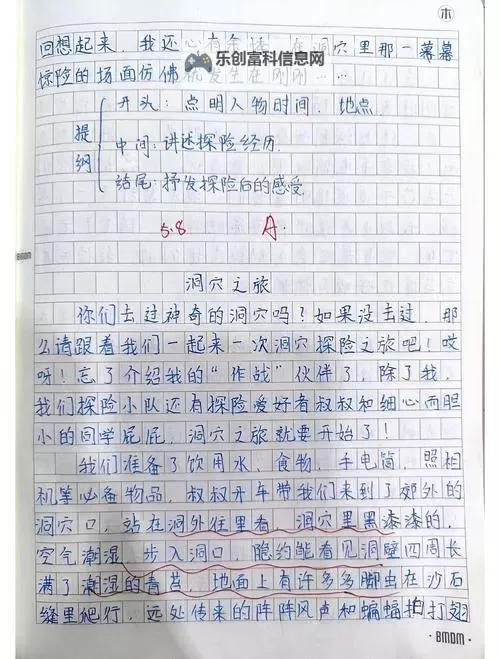 木
回想起来，我还心有余悸，在洞穴里那一幕幕
乐创富科信息网
惊险的场面仿佛就发生在刚刚……
提纲
开头：点明人物时间、地点
中间：讲述探险经历.
结尾：抒发探险后的感受
5.8 A.
BMDM
洞穴之旅
你们去过神奇的洞穴吗？如果没去过，那
么请跟着我们一起来一次洞穴探险之旅吧！哎
呀！忘了介绍我的“作战”伙伴了，除了我，
我们探险小队还有探险爱好者叔叔和细心而胆
小的同学屁屁，洞穴之旅就要开始了！
我们准备了饮用水、食物、手电筒、照相
机等必备物品，叔叔开车带我们来到了郊外的
洞穴口，站在洞外往里看，洞穴里黑漆漆的，
空气潮湿，步入洞口，隐约能看见洞壁四周长
满了潮湿的青苔，地面上有许多多脚虫在沙石
缝里爬行，远处传来的阵阵风声和蝙蝠拍打翅
BMDM